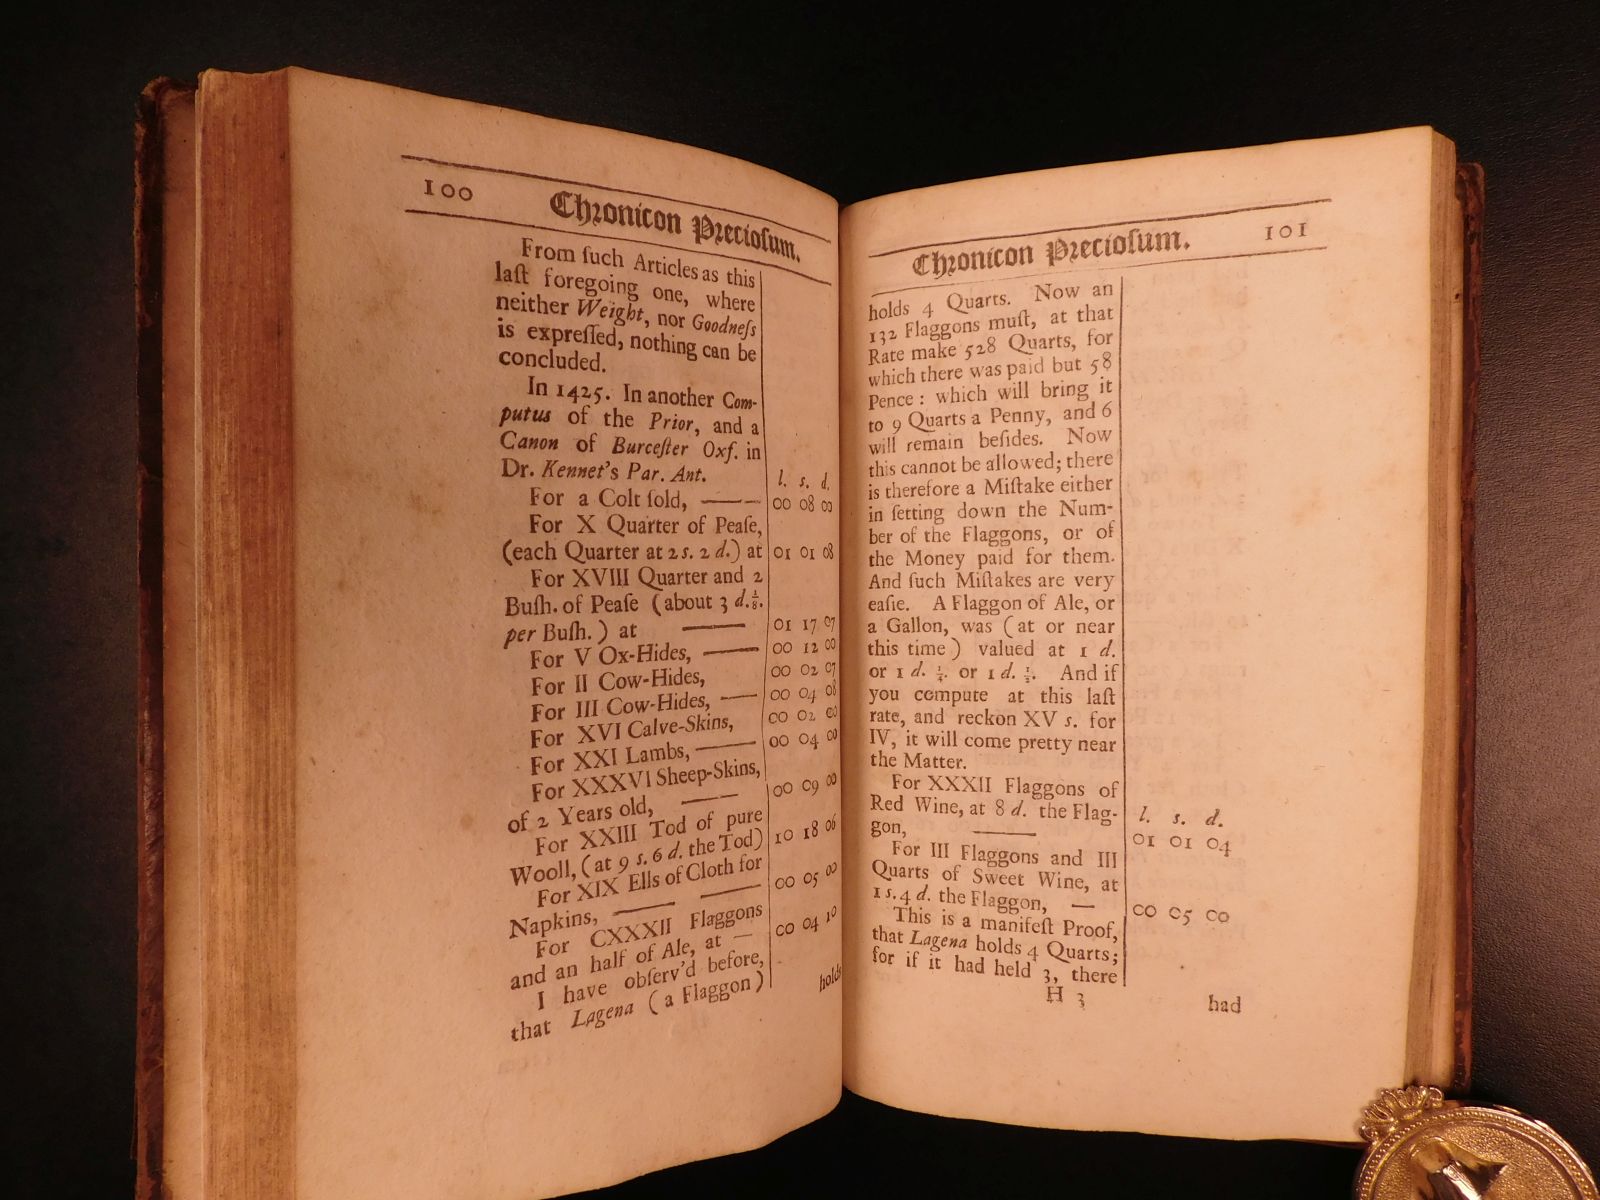 100 Chronicon Preciosum.
From ſuch Articles as this
laſt foregoing one, where
neither Weight, nor Goodneſs
is expreſſed, nothing can be
concluded.
In 1425. In another Com-
putus of the Prior, and a
Canon of Burceſter Oxf. in
Dr. Kennet's Par. Ant. l. s. d.
For a Colt ſold, —— 00 08 00
For X Quarter of Peaſe,
(each Quarter at 2 s. 2 d.) at 01 01 08
For XVIII Quarter and 2
Buſh. of Peaſe (about 3 d. 1/8.
per Buſh.) at —— 01 17 07
For V Ox-Hides, —— 00 12 00
For II Cow-Hides, 00 02 07
For III Cow-Hides, —— 00 04 08
For XVI Calve-Skins, 00 02 00
For XXI Lambs, —— 00 04 00
For XXXVI Sheep-Skins,
of 2 Years old, —— 00 09 00
For XXIII Tod of pure
Wooll, (at 9 s. 6 d. the Tod) 10 18 06
For XIX Ells of Cloth for
Napkins, —— —— 00 05 00
For CXXXII Flaggons
and an half of Ale, at — 00 04 10
I have obſerv'd before,
that Lagena (a Flaggon)
holds
Chronicon Precioſum. 101
holds 4 Quarts. Now an
132 Flaggons muſt, at that
Rate make 528 Quarts, for
which there was paid but 58
Pence : which will bring it
to 9 Quarts a Penny, and 6
will remain beſides. Now
this cannot be allowed; there
is therefore a Miſtake either
in ſetting down the Num-
ber of the Flaggons, or of
the Money paid for them.
And ſuch Miſtakes are very
eaſie. A Flaggon of Ale, or
a Gallon, was (at or near
this time) valued at 1 d.
or 1 d. 1/4. or 1 d. 1/2. And if
you compute at this laſt
rate, and reckon XV s. for
IV, it will come pretty near
the Matter.
For XXXII Flaggons of
Red Wine, at 8 d. the Flag- l. s. d.
gon, —— 01 01 04
For III Flaggons and III
Quarts of Sweet Wine, at
1 s. 4 d. the Flaggon, — 00 05 00
This is a manifeſt Proof,
that Lagena holds 4 Quarts;
for if it had held 3, there
H 3 had